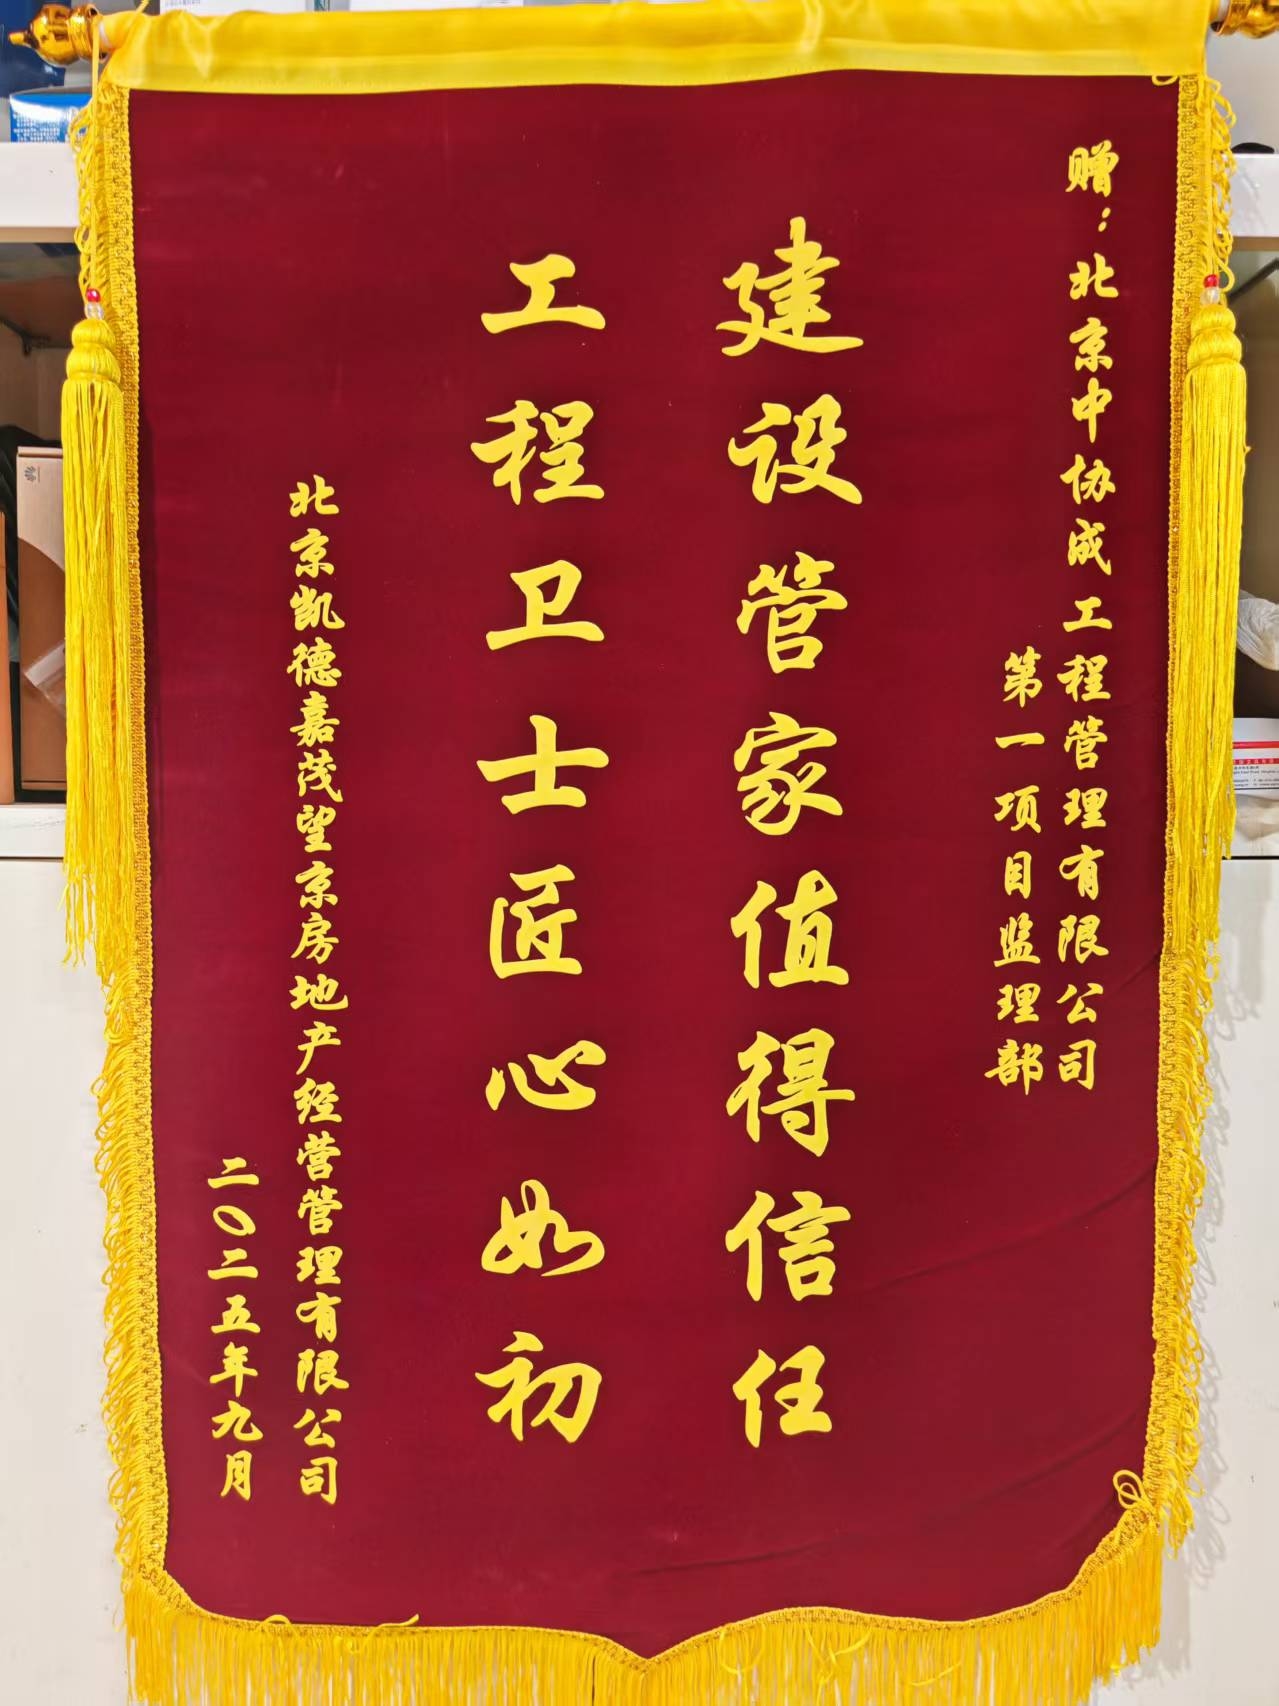 赠：北京中协成工程管理有限公司
第一项目监理部
建设管家值得信任
工程卫士匠心如初
北京凯德嘉茂望京房地产经营管理有限公司
二〇二五年九月